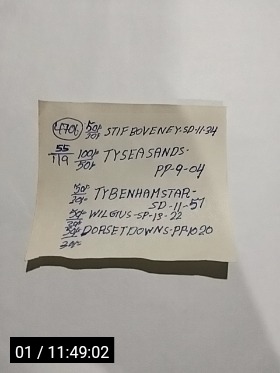 4706 50p/30p STIF BOVENEY-SD-11-34
55/119 100p/50p TYSEASANDS-
PP-9-04
50p/30p TYBENHAMSTAR-
SD-11-57
50p/30p WILGIUS-SP-18-22
50p/30p DORSETDOWNS-PP-10 20
01 / 11:49:02